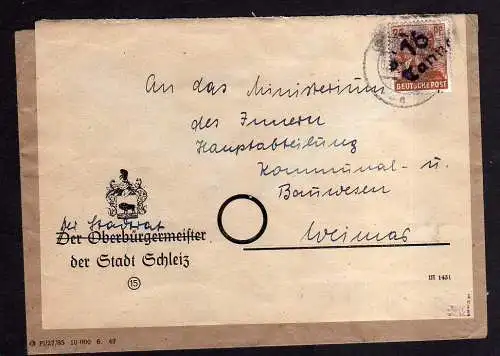 16
Tanna
DEUTSCHE POST
An das Ministerium
des Innern
Hauptabteilung
Kommunal- u.
Bauwesen
Weimar
Der Stadtrat
Der Oberbürgermeister
der Stadt Schleiz
15
III 1431
10 000 6. 47